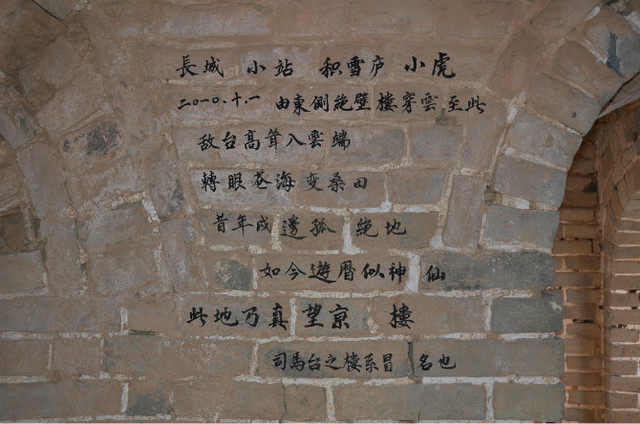 長城 小站 积雪庐 小虎
二〇一〇.十.一 由東側絶壁樓穿雲至此
敌台髙耸入雲端
轉眼苍海变桑田
昔年戍邊孤絶地
如今遊曆似神仙
此地乃真望京樓
司馬台之樓系冒名也